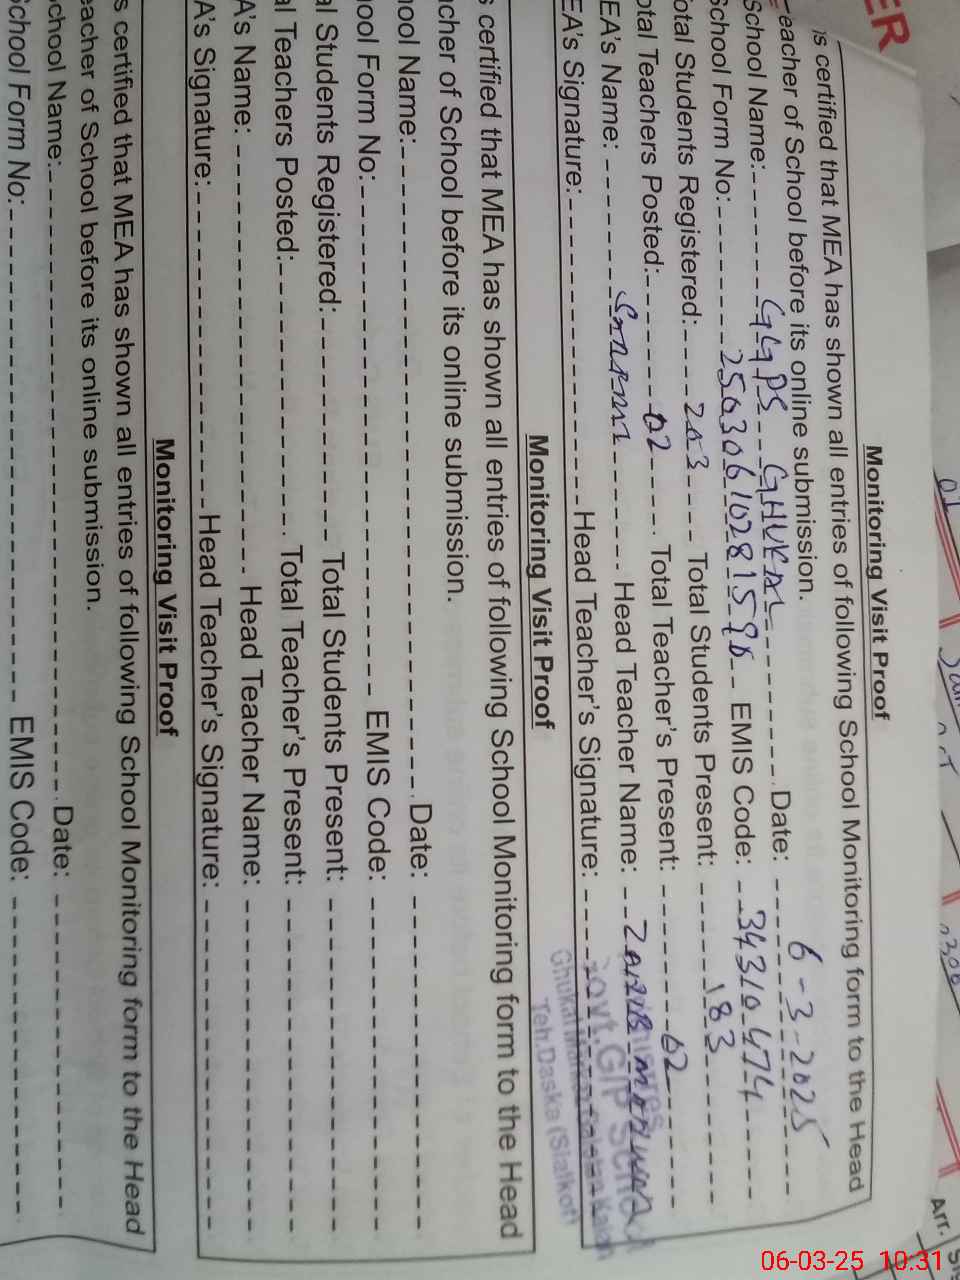 ER
Monitoring Visit Proof
is certified that MEA has shown all entries of following School Monitoring form to the Head
eacher of School before its online submission.
School Name: GGPS GHUKAL Date: 6-3-2025
School Form No: 2503061028159 EMIS Code: 34310474
otal Students Registered: 203 Total Students Present: 183
otal Teachers Posted: 02 Total Teacher's Present: 02
EA's Name: Head Teacher Name:
EA's Signature: Head Teacher's Signature:
Govt. G/P School
Ghukal
Teh. Daska (Sialkot)
Monitoring Visit Proof
s certified that MEA has shown all entries of following School Monitoring form to the Head
acher of School before its online submission.
hool Name: Date:
hool Form No: EMIS Code:
al Students Registered: Total Students Present:
al Teachers Posted: Total Teacher's Present:
A's Name: Head Teacher Name:
A's Signature: Head Teacher's Signature:
Monitoring Visit Proof
s certified that MEA has shown all entries of following School Monitoring form to the Head
eacher of School before its online submission.
chool Name: Date:
School Form No: EMIS Code:
Arr.
06-03-25 10:31